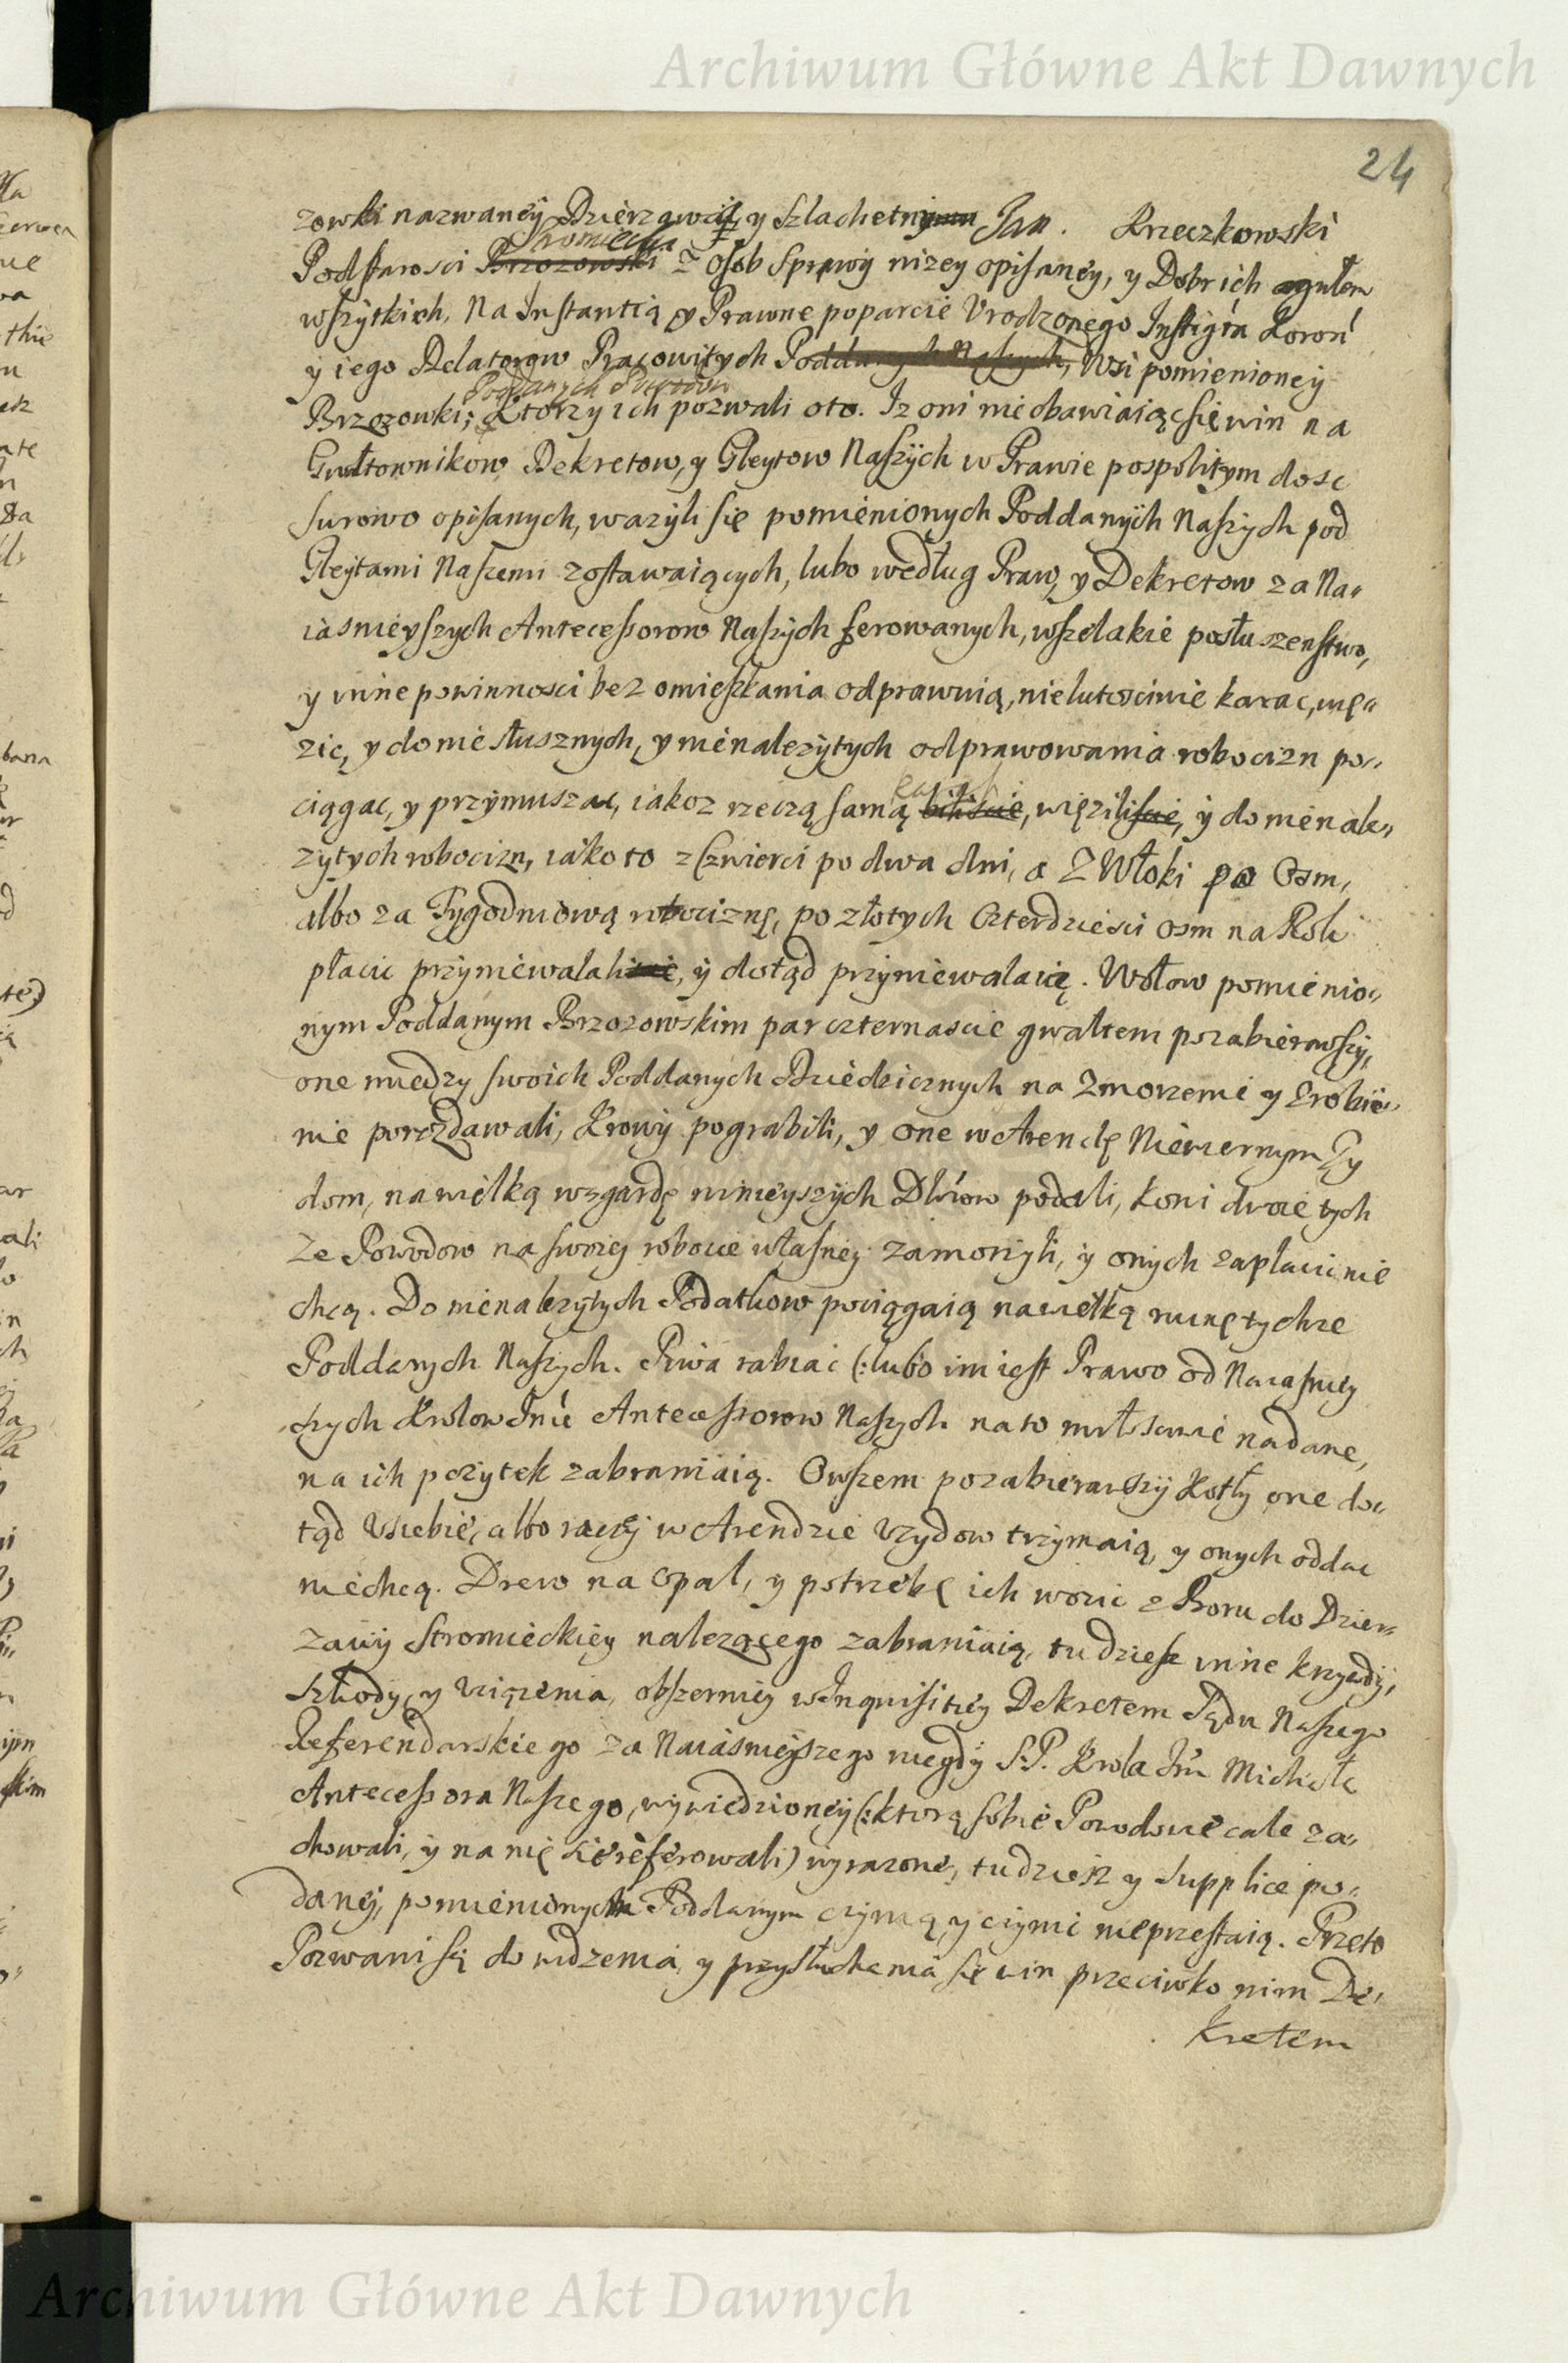 Archiwum Główne Akt Dawnych
24
zowki nazwaney Dzierzawcy y Szlachetny Jan. Krzeczkowski
Stromiecki
Podstarosci Brzozowski z osob Sprawy nizey opisaney, y Dobr ich ogułem
wszytkich, Na Instantią y Prawne poparcie Urodzonego Instigta Koron
y iego Delatorow Pracowitych Poddanych Naszych, Wsi pomienioney
Poddanych Powodow
Brzozowki; Ktorzy ich pozwali oto. Iz oni nieobawiaiąc się win na
Gwałtownikow Dekretow, y Gleytow Naszych w Prawie pospolitym dosc
surowo opisanych, wazyli się pomienionych Poddanych Naszych pod
Gleytami Naszemi zostawaiących, lubo według Praw, y Dekretow za Na„
iasnieyszych Antecessorow Naszych ferowanych, wszelakie posłuszenstwo,
y inne powinnosci bez omieszkania odprawuią, nielutosciwie karac, wię„
zic, y do niesłusznych, y nienalezytych odprawowania robocizn po„
ciągac, y przymuszac, iakoz rzeczą samą biliscie, więziliscie, y do nienale„
zytych robocizn, iako to z Czwierci po dwa dni, a Z Włoki po Osm,
albo za Tygodniową robociznę, po złotych Czterdziesci osm na Rok
płacic przyniewalaliscie, y dotąd przyniewalaią. Wołow pomienio„
nym Poddanym Brzozowskim par czternascie gwałtem pozabierawszy,
one między swoich Poddanych Dziedzicznych na Zmorzenie y Zrobie„
nie porozdawali, Krowy pograbili, y one w Arendę Niewiernym Zy
dom, na wielką wzgardę ninieyszych Dktow podali, koni dwoie tych
ze Powodow na swoiey robocie własney zamorzyli, y onych zapłacic nie
chcą. Do nienalezytych Podatkow pociągaią na wielką ruinę tychze
Poddanych Naszych. Piwa rabiac (: lubo im iest Prawo od Naiasniey
szych Krolow Ichmci Antecessorow Naszych na to miłosciwie nadane,
na ich pozytek zabraniaią. Owszem pozabierawszy Kotły one do„
tąd Usiebie, albo raczey w Arendzie Uzydow trzymaią, y onych oddac
niechcą. Drew na opal, y potrzebę ich wozic z Boru do Dzier„
zawy Stromieckiey nalezącego zabraniaią, tudziesz inne krzywdy,
szkody, y uciązenia, obszerniey w Inquisitiey Dekretem Sądu Naszego
Referendarskiego za Naiasnieyszego niegdy S.P. Krola Jmci Michała
Antecessora Naszego, wywiedzioney (: ktorą sobie Powodowie cale za„
chowali, y na nię się referowali) wyrazone, tudziesz y Supplice po„
daney, pomienionym Poddanym czynią, y czynic nieprzestaią. Przeto
Pozwani są do widzenia y przysłuchania się win przeciwko nim De„
kretem
Archiwum Główne Akt Dawnych